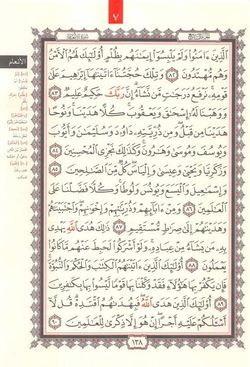 ٧
الأنعام
الذين ءامنوا ولم يلبسوا إيمنهم بظلم أولئك لهم الأمن
وهم مهتدون ٨٢ وتلك حجتنا ءاتينها إبرهيم على
قومه نرفع درجت من نشاء إن ربك حكيم عليم ٨٣
ووهبنا له إسحق ويعقوب كلا هدينا ونوحا
هدينا من قبل ومن ذريته داود وسليمن وأيوب
ويوسف وموسى وهرون وكذلك نجزي المحسنين ٨٤
وزكريا ويحيى وعيسى وإلياس كل من الصلحين ٨٥
وإسمعيل واليسع ويونس ولوطا وكلا فضلنا على
العلمين ٨٦ ومن ءابائهم وذريتهم وإخونهم واجتبينهم
وهدينهم إلى صرط مستقيم ٨٧ ذلك هدى الله يهدي
به من يشاء من عباده ولو أشركوا لحبط عنهم ما كانوا
يعملون ٨٨ أولئك الذين ءاتينهم الكتب والحكم والنبوة
فإن يكفر بها هؤلاء فقد وكلنا بها قوما ليسوا بها بكفرين
٨٩ أولئك الذين هدى الله فبهدىهم اقتده قل لا
أسئلكم عليه أجرا إن هو إلا ذكرى للعلمين ٩٠
١٣٨